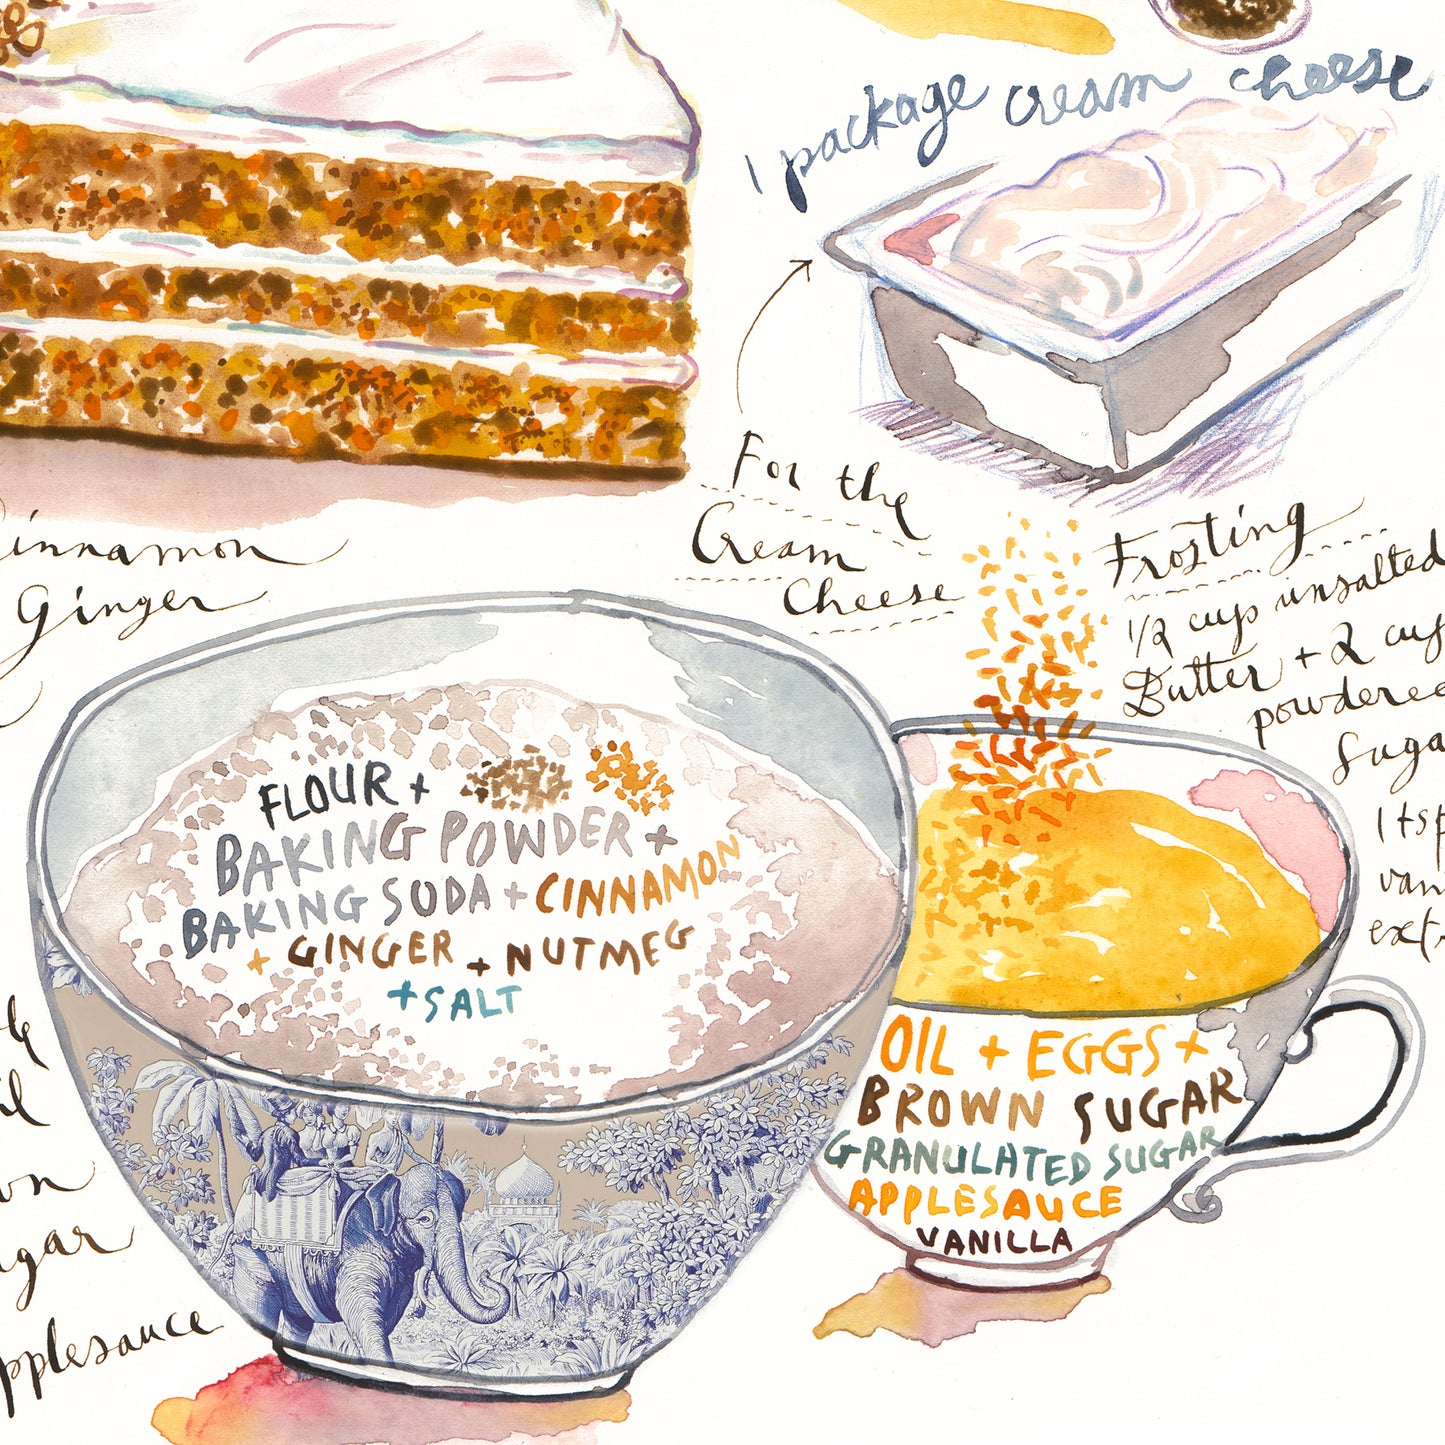 1 package cream cheese
For the
Cream
Cheese
Frosting
1/2 cup unsalted
Butter + 2 cup
powdered
Sugar
1 tsp
van
ext.
Cinnamon
Ginger
FLOUR +
BAKING POWDER +
BAKING SODA + CINNAMON
+ GINGER + NUTMEG
+ SALT
OIL + EGGS +
BROWN SUGAR
GRANULATED SUGAR
APPLESAUCE
VANILLA
wn
ugar
pplesauce